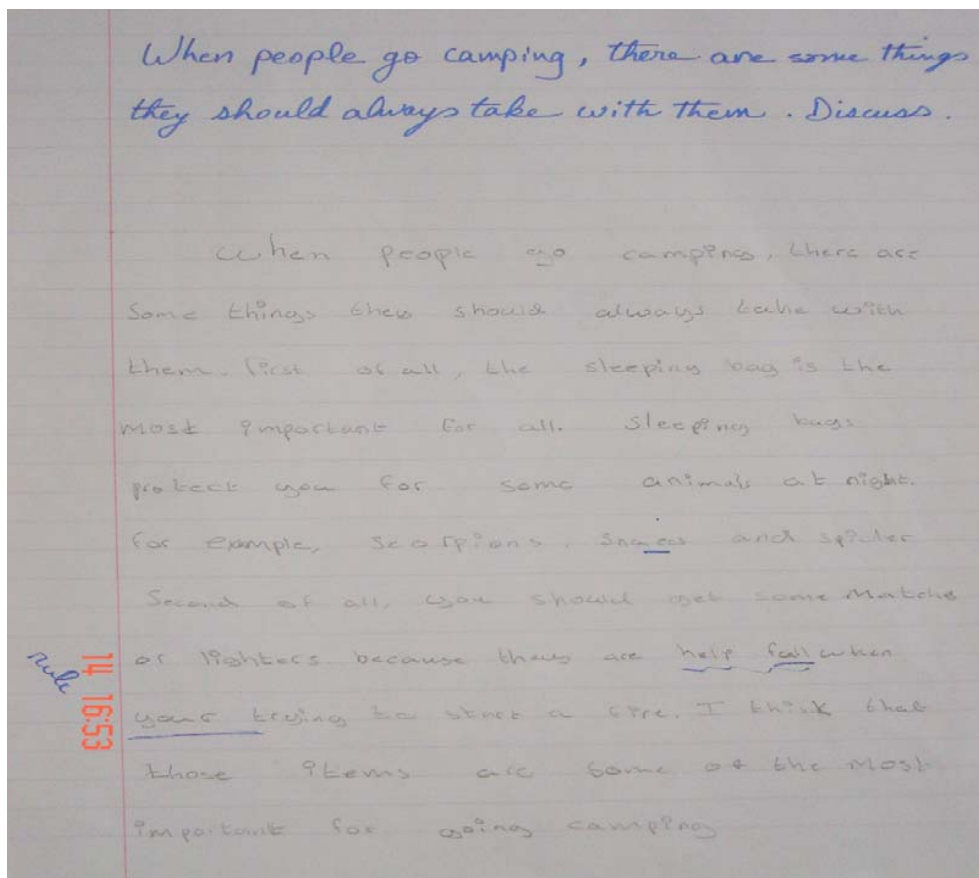 When people go camping, there are some things
they should always take with them. Discuss.
When people go camping, there are
some things they should always take with
them. first of all, the sleeping bag is the
most important for all. Sleeping bags
protect you for some animals at night.
for example, scorpions, and spider
Second of all, you should get some matches
or lighters because they are help full when
your trying to start a fire. I think that
those items are some of the most
important for going camping
rule
14 16:53